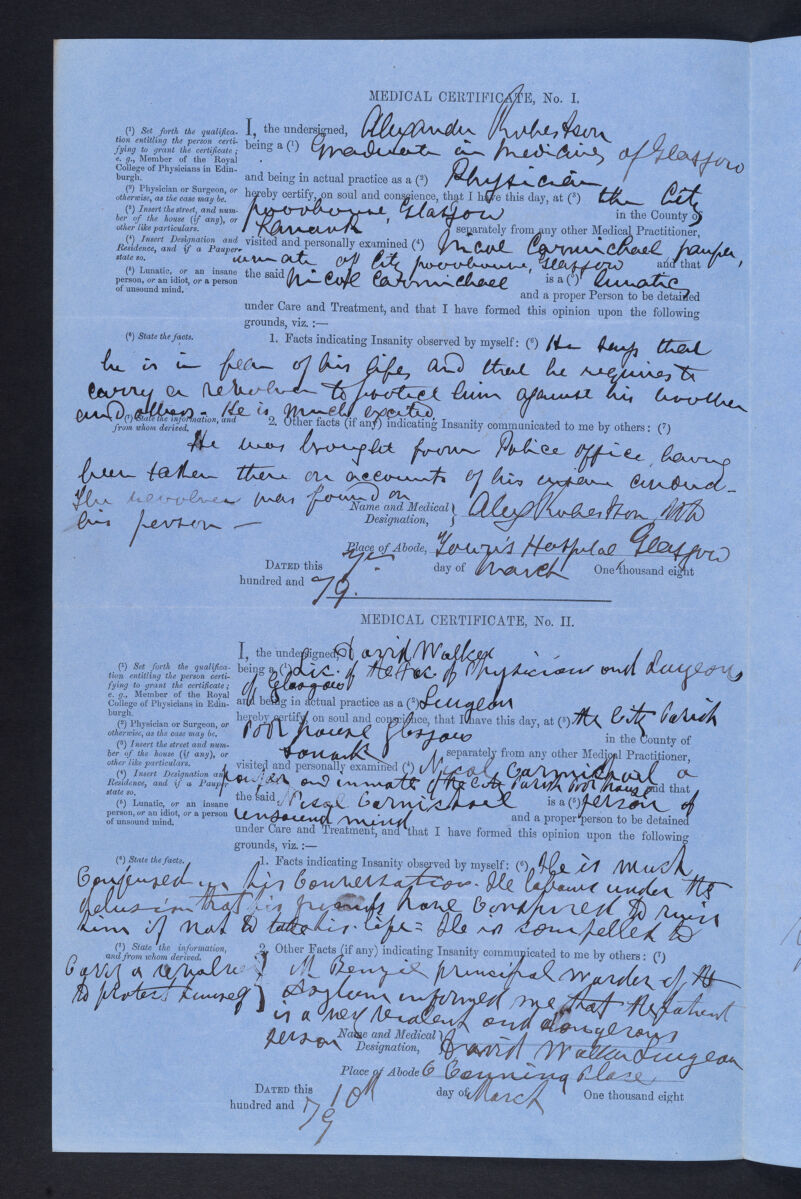 MEDICAL CERTIFICATE, No. I.
(¹) Set forth the qualifica-
tion entitling the person certi-
fying to grant the certificate;
e. g., Member of the Royal
College of Physicians in Edin-
burgh.
(²) Physician or Surgeon, or
otherwise, as the case may be.
(³) Insert the street, and num-
ber of the house (if any), or
other like particulars.
(⁴) Insert Designation and
Residence, and if a Pauper
state so.
(⁵) Lunatic, or an insane
person, or an idiot, or a person
of unsound mind.
I, the undersigned, Alexander Robertson
being a (¹) Graduate in Medicine, of Glasgow
and being in actual practice as a (²) Physician
hereby certify, on soul and conscience, that I have this day, at (³) the City
poorhouse, Glasgow in the County of
Lanark separately from any other Medical Practitioner,
visited and personally examined (⁴) Nicol Carmichael pauper,
inmate of City poorhouse, Glasgow and that
the said Nicol Carmichael is a (⁵) lunatic,
and a proper Person to be detained
under Care and Treatment, and that I have formed this opinion upon the following
grounds, viz. :—
(⁶) State the facts.
1. Facts indicating Insanity observed by myself: (⁶) He says that
he is in fear of his life, and that he requires to
carry a revolver to protect him against his brother
and others. He is much excited.
(⁷) State the information, and
from whom derived.
2. Other facts (if any) indicating Insanity communicated to me by others: (⁷)
He was brought from Police office, having
been taken there on accounts of his insane conduct
The revolver was found on
his person —
Name and Medical
Designation, Alex Robertson MD
Place of Abode, Town's Hospital Glasgow
DATED this day of March One thousand eight
hundred and 79.
MEDICAL CERTIFICATE, No. II.
(¹) Set forth the qualifica-
tion entitling the person certi-
fying to grant the certificate;
e. g., Member of the Royal
College of Physicians in Edin-
burgh.
(²) Physician or Surgeon, or
otherwise, as the case may be.
(³) Insert the street and num-
ber of the house (if any), or
other like particulars.
(⁴) Insert Designation and
Residence, and if a Pauper
state so.
(⁵) Lunatic, or an insane
person, or an idiot, or a person
of unsound mind.
I, the undersigned, David Walker
being a (¹) Lic. of the Fac of Physicians and Surgeons
of Glasgow
and being in actual practice as a (²) Surgeon
hereby certify, on soul and conscience, that I have this day, at (³) the City Parish
Poor house Glasgow in the County of
Lanark separately from any other Medical Practitioner,
visited and personally examined (⁴) Nicol Carmichael a
pauper and inmate of the City Parish Poor house and that
the said Nicol Carmichael is a (⁵) person of
unsound mind and a proper person to be detained
under Care and Treatment, and that I have formed this opinion upon the following
grounds, viz. :—
(⁶) State the facts.
1. Facts indicating Insanity observed by myself: (⁶) He is much
Confused in his Conversation. He labours under the
delusion that his friends have Conspired to ruin
him if not to take his life = He is compelled to
Carry a revolver
to protect himself
(⁷) State the information,
and from whom derived.
2. Other Facts (if any) indicating Insanity communicated to me by others: (⁷)
M Benzie principal warder of the
Asylum informed me that the patient
is a very violent and dangerous
person
Name and Medical
Designation, David Walker Surgeon
Place of Abode 6 Canning Place
DATED this 10th day of March One thousand eight
hundred and 79